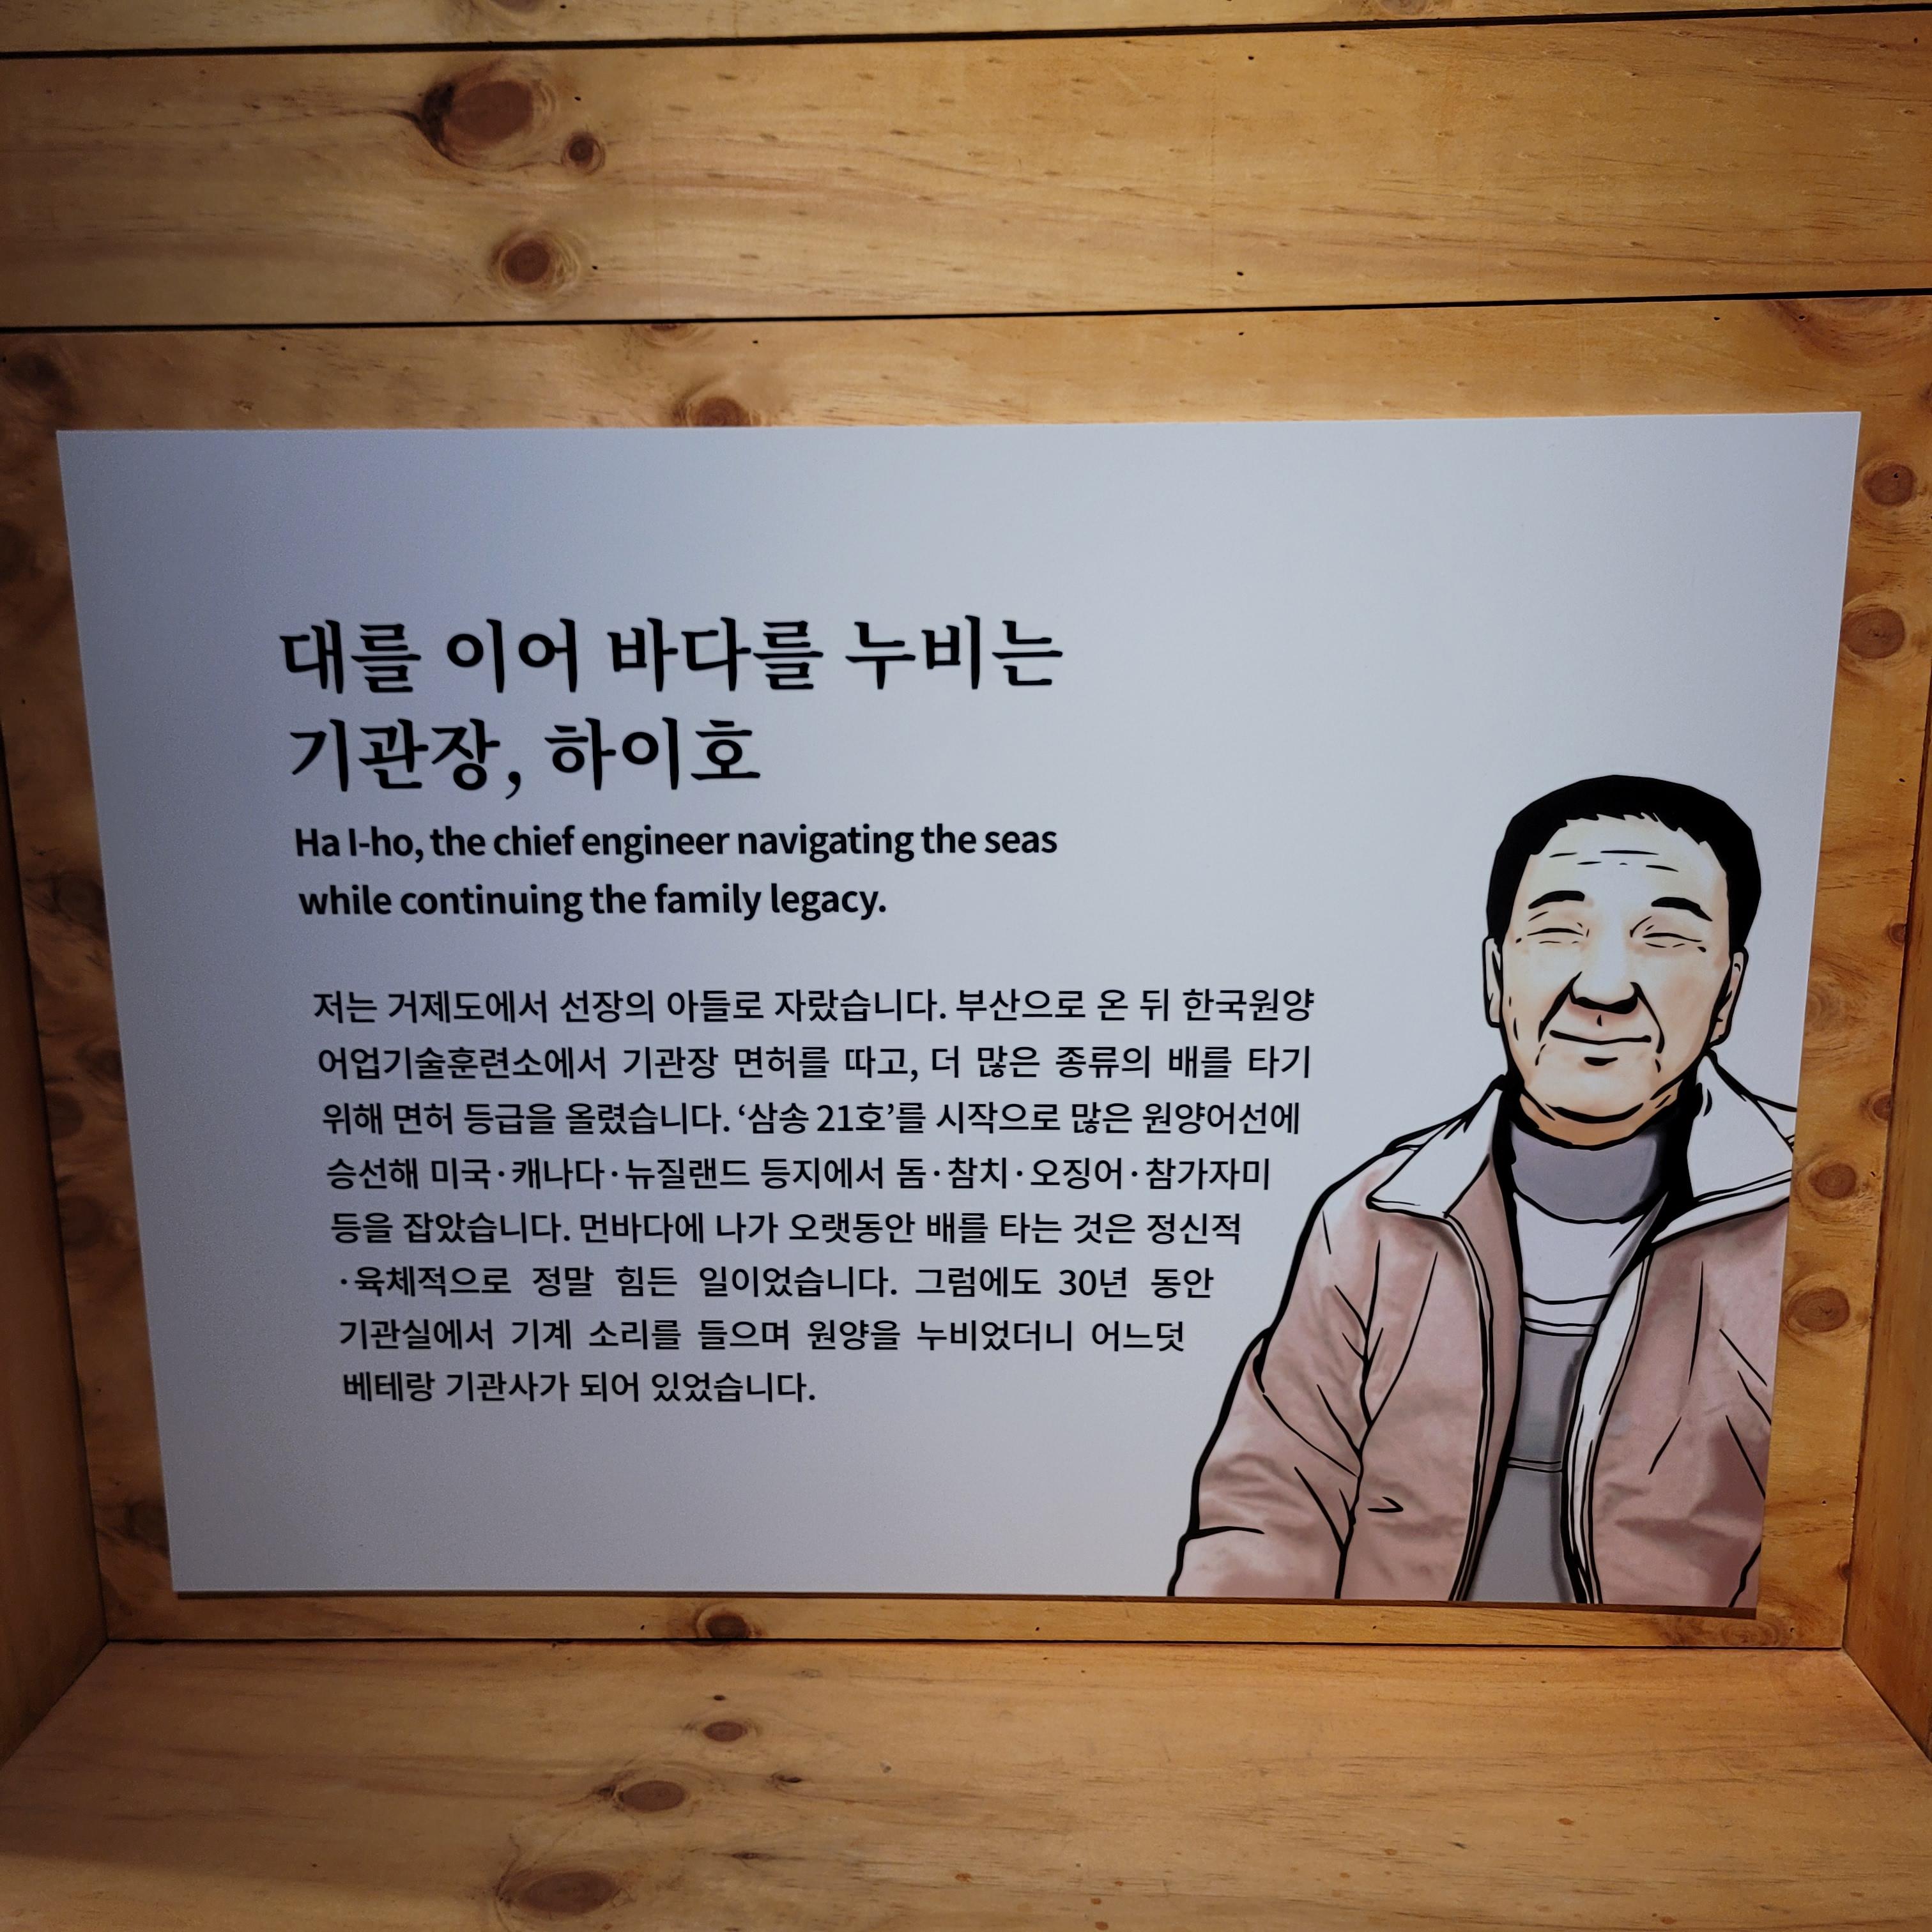 대를 이어 바다를 누비는
기관장, 하이호
Ha I-ho, the chief engineer navigating the seas
while continuing the family legacy.
저는 거제도에서 선장의 아들로 자랐습니다. 부산으로 온 뒤 한국원양
어업기술훈련소에서 기관장 면허를 따고, 더 많은 종류의 배를 타기
위해 면허 등급을 올렸습니다. ‘삼송 21호’를 시작으로 많은 원양어선에
승선해 미국·캐나다·뉴질랜드 등지에서 돔·참치·오징어·참가자미
등을 잡았습니다. 먼바다에 나가 오랫동안 배를 타는 것은 정신적
·육체적으로 정말 힘든 일이었습니다. 그럼에도 30년 동안
기관실에서 기계 소리를 들으며 원양을 누비었더니 어느덧
베테랑 기관사가 되어 있었습니다.